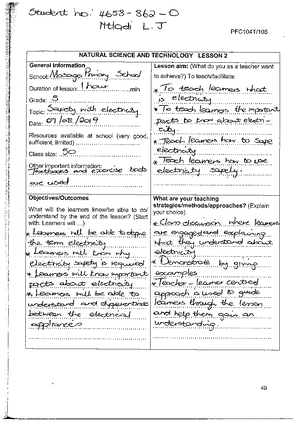 Student no: 4658-862-0
Ntladi L.J
PFC104T/106
NATURAL SCIENCE AND TECHNOLOGY LESSON 2
General Information
School: Masago Primary School
Duration of lesson: 1 hour min
Grade: 5
Topic: Safety with electricity
Date: 07/08/2019
Resources available at school (very good,
sufficient, limited)
Class size: 50
Other important information:
Textbooks and exercise books
are used
Lesson aim: (What do you as a teacher want
to achieve?) To teach/facilitate:
* To teach learners what
is electricity
* To teach learners the important
facts to know about electri-
city.
* Teach learners how to safe
electricity
* Teach learners how to use
electricity safely.
Objectives/Outcomes
What will the learners know/be able to do/
understand by the end of the lesson? (Start
with: Learners will ...)
* Learners will be able to define
the term electricity
* Learners will know why
electricity safety is required
* Learners will know important
facts about electricity
* Learners will be able to
understand and differentiate
between the electrical
appliances
What are your teaching
strategies/methods/approaches? (Explain
your choice)
* Class discussion where learners
are engaged and explaining
what they understand about
electricity
* Demonstrate by giving
examples
* Teacher - learner centred
approach is used to guide
learners through the lesson
and help them gain an
understanding
49